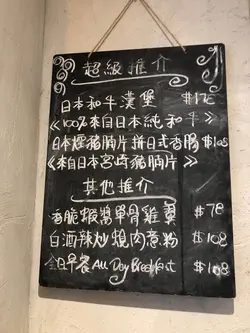 超級推介
日本和牛漢堡 $176
《100%來自日本純和牛》
日本煙豬腩片拼日式香腸 $108
《來自日本宮崎豬腩片》
其他推介
香脆蝦醬單骨雞翼 $78
白酒辣炒蜆肉意粉 $108
全日早餐 All Day Breakfast $108